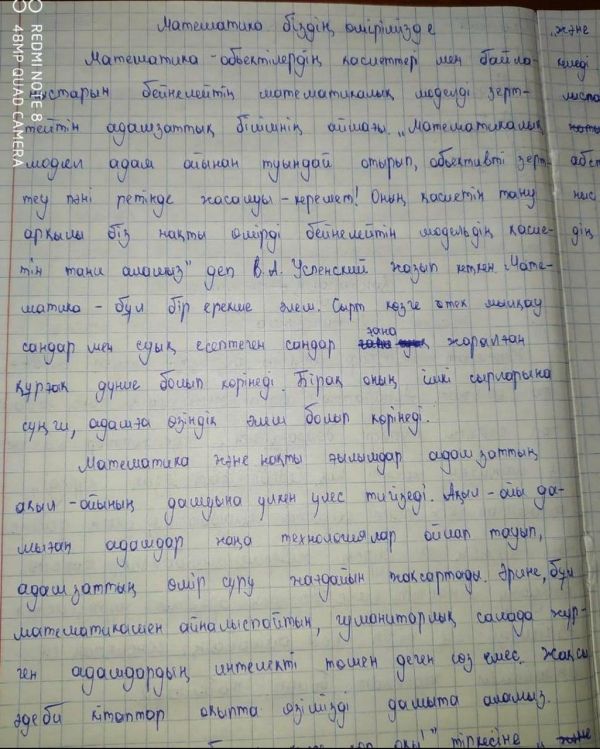 Математика біздің өмірімізде
Математика - объектілердің қасиеттер мен байла-
ныстарын бейнелейтін математикалық моделді зерт-
тейтін адамзаттық білімнің аймағы. „Математикалық
модел адам ойынан туындай отырып, объективті зерт-
теу пәні ретінде жасалуы - керемет! Оның қасиетін тану
арқылы біз нақты өмірді бейнелейтін модельдің қасие-
тін тани аламыз" деп В.А. Успенский жазып кеткен. Мате-
матика - бұл бір ерекше әлем. Сырт көзге өтек мыңқау
сандар мен судық есептеген сандар ғана жаралған
құрғақ дүние болып көрінеді. Бірақ оның ішкі сырларына
сүңги, адамға өзіндік әлем болып көрінеді.
Математика және нақты ғылымдар адамзаттың
ақыл - ойының дамуына үлкен үлес тигізеді. Ақыл - ойы да-
мыған адамдар жаңа технологиялар ойлап тауып,
адамзаттың өмір сүру жағдайын жақсартады. Әрине, бұл
математикамен айналыспайтын, гуманиторлық салада жүр-
ген адамдардың интелекті төмен деген сөз емес. Жақсы
әдеби кітаптор оқыпта өзімізді дамыта аламыз.
тіркесіне
„және
келеді
абст
дің
REDMI NOTE 8
48MP QUAD CAMERA